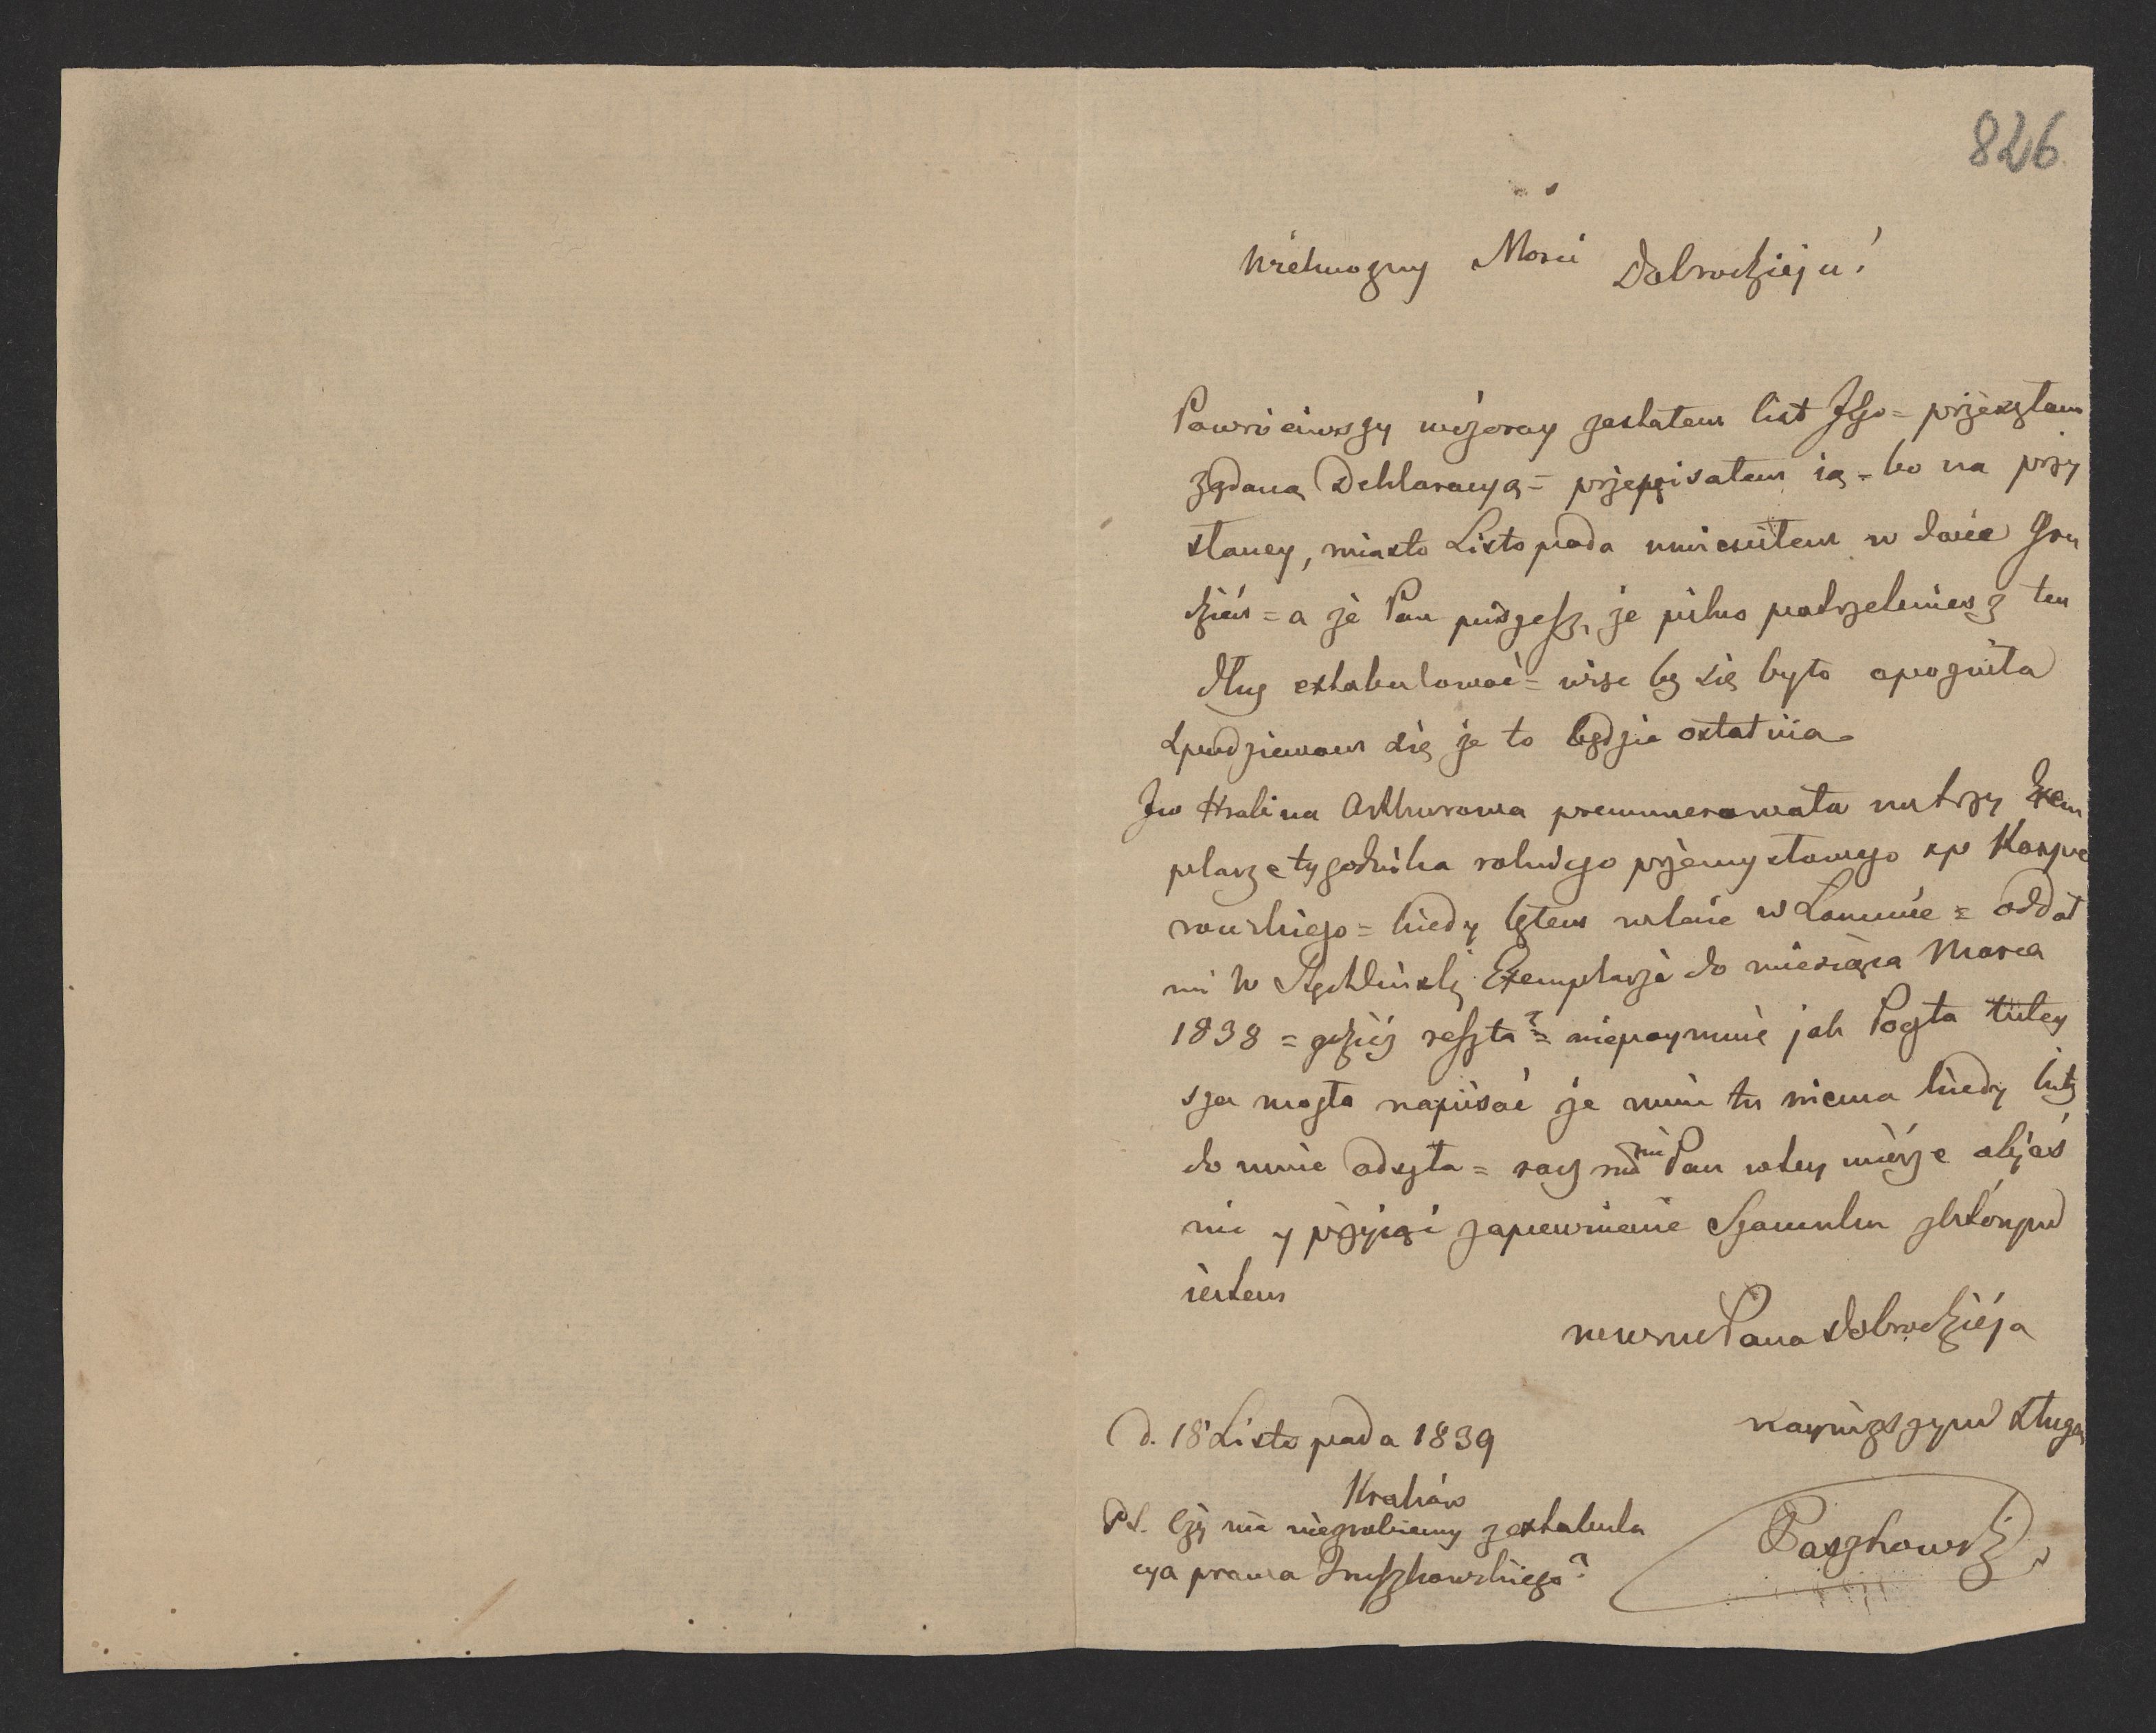 826
Wielmożny Mości Dobrodzieju!
Powróciwszy wczoray zastałem list Jgo = przeczytałem
żądaną Deklaracyą = przepisałem ią = bo na przy
słaney, miasto Listopada umieściłem w dacie Gru
dzień = a że Pan piszesz, że pilno potrzebuiesz ten
dług extabulować = więc by się było opoźniło
Spodziewam się że to będzie ostatnia
Jw Hrabina Arthurowa prenumerowała na trzy Exem
plarze tygodnika rolniczego przemysłowego xp Kasper
rowskiego = kiedy byłem w Łańcucie = oddał
mi W Exemplarze do miesiąca Marca
1838 = gdzież reszta? = niepoymuie jak Poczta tutey
sza mogła napisać że mnie tu niema kiedy listy
do mnie odsyła = racz mnie Pan w tey mierze objaś
nić y przyiąć zapewnienie Szacunku z którym
iestem
Pana Dobrodzieja
nayniższym sługą
d. 18 Listopada 1839
Kraków
PS. Czy nie niezrobiemy z extabula
cya prawa Gruszkowskiego?
Paszkowski